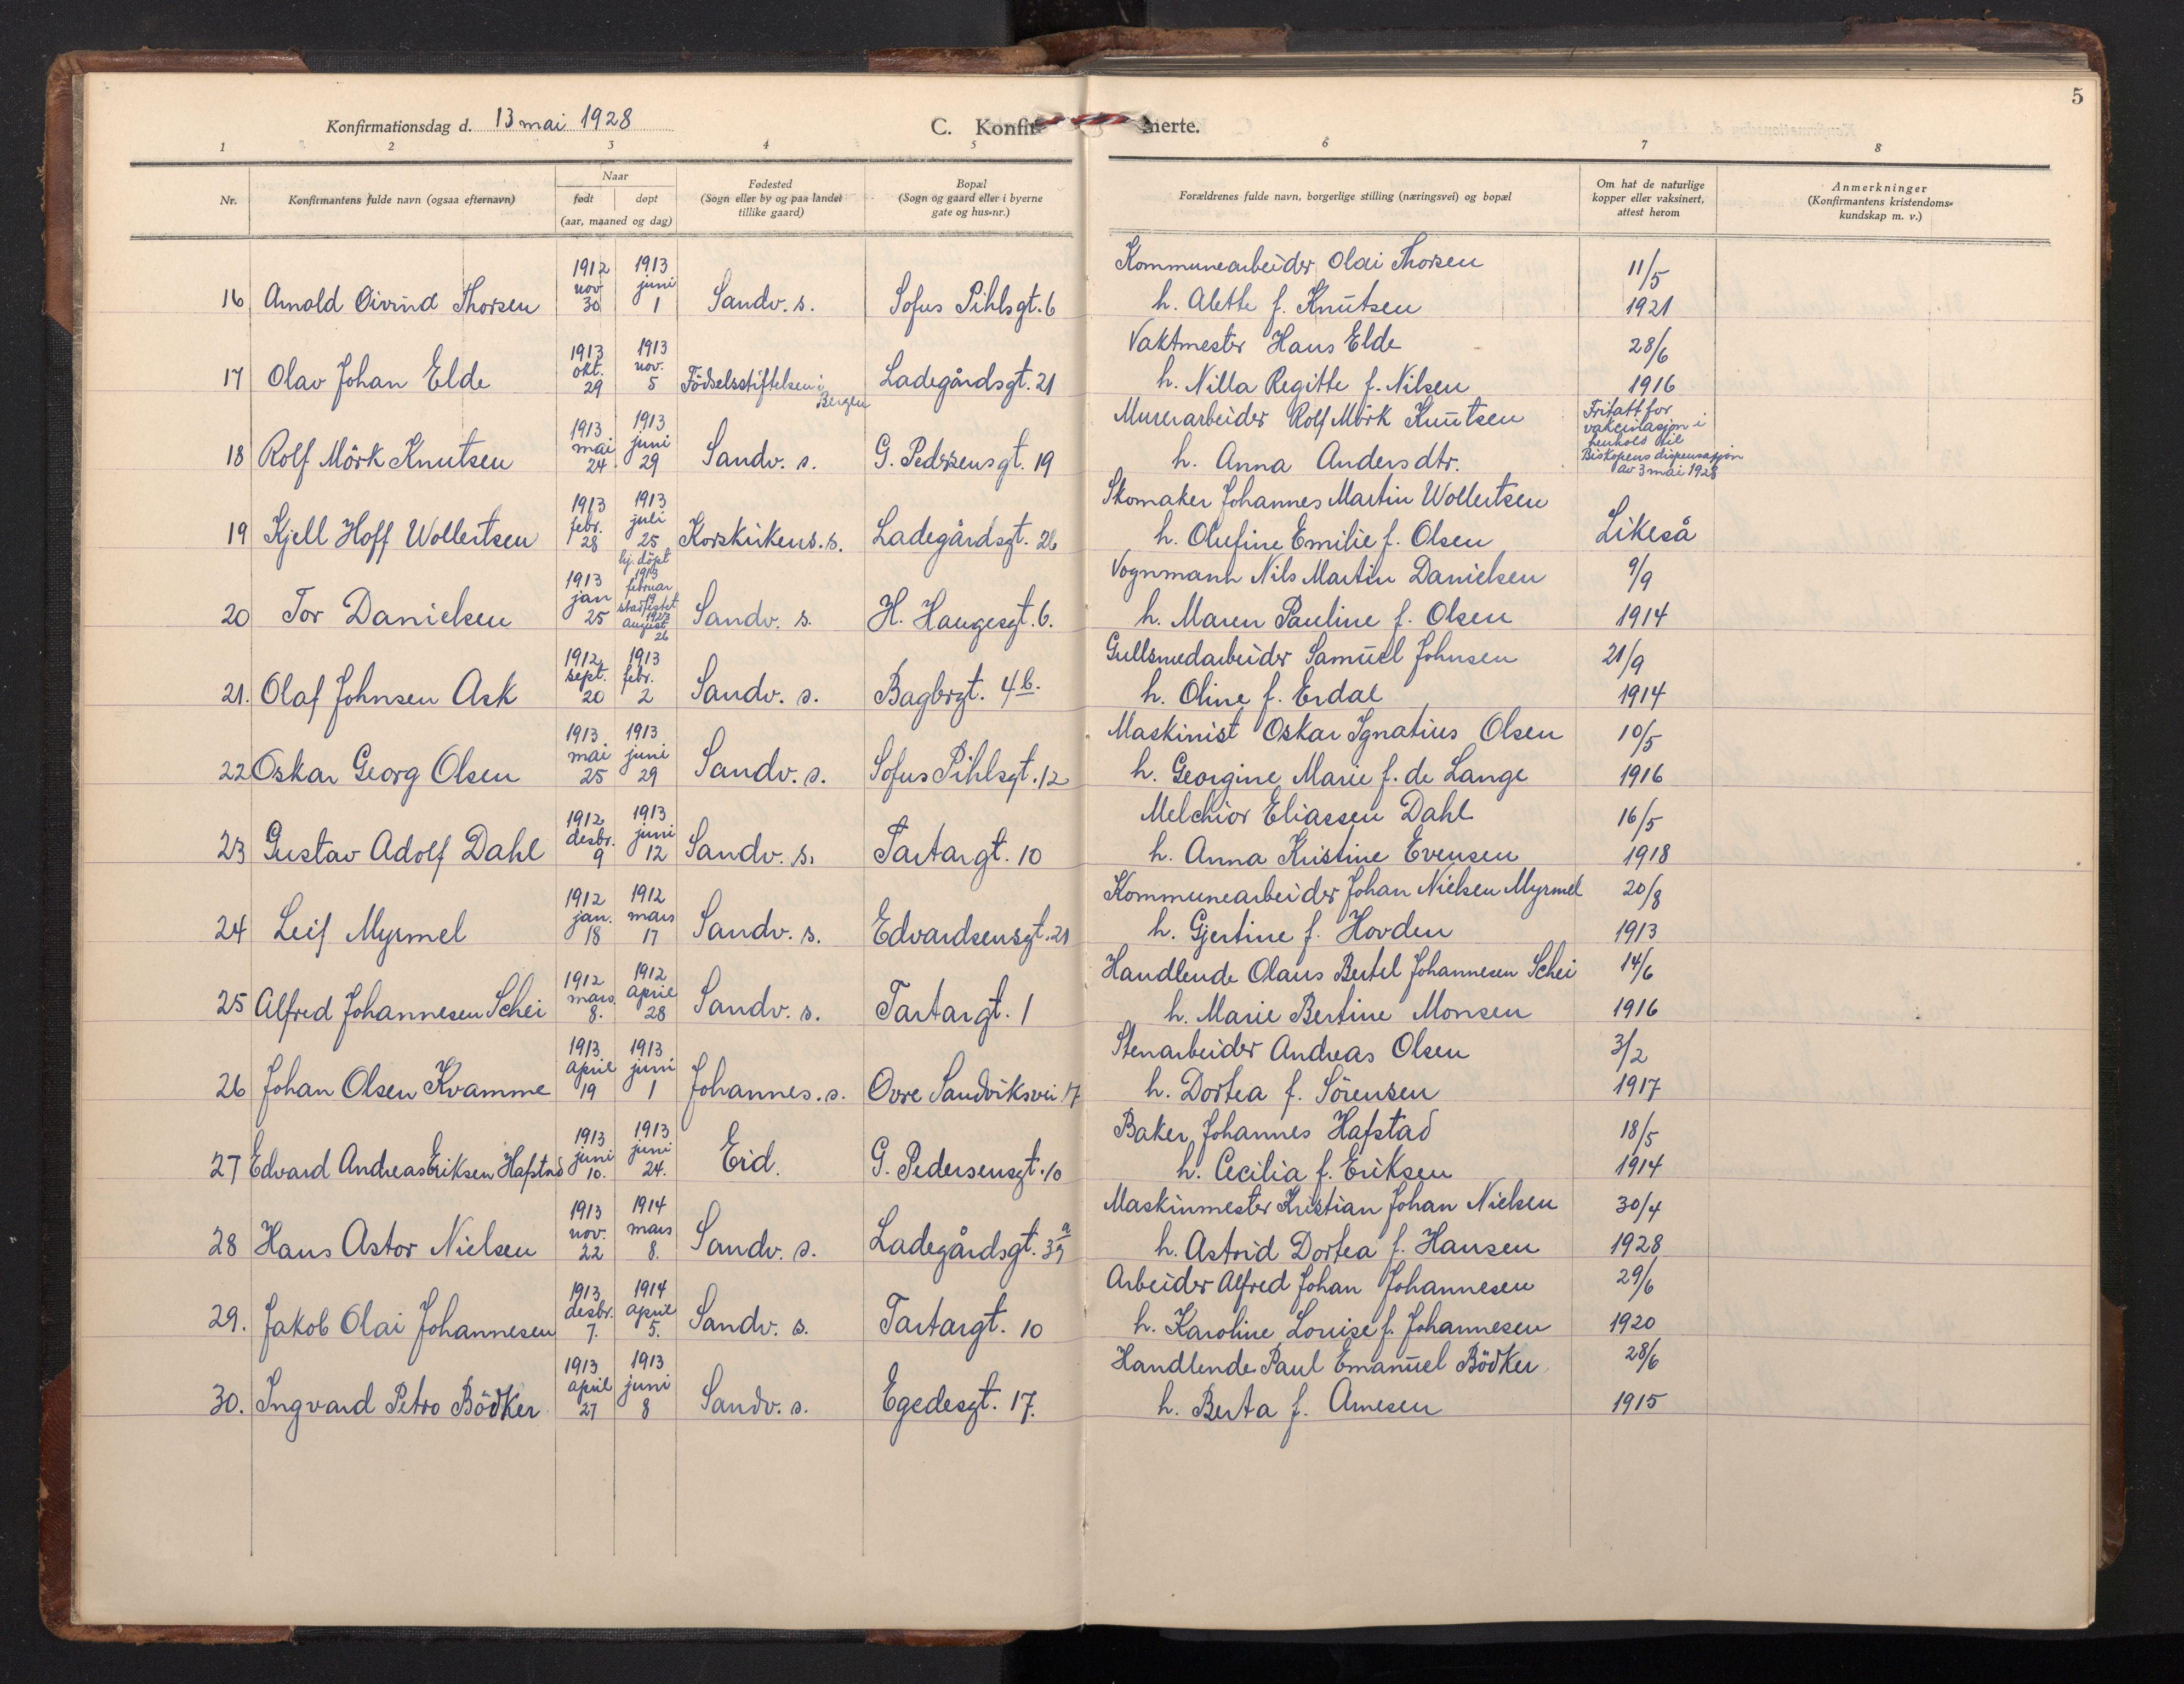 5
Konfirmationsdag d. 13 mai 1928
C. Konfir merte.
1 2 3 4 5 6 7 8
Nr.
Konfirmantens fulde navn (ogsaa efternavn)
Naar
født døpt
(aar, maaned og dag)
Fødested
(Sogn eller by og paa landet
tillike gaard)
Bopæl
(Sogn og gaard eller i byerne
gate og hus-nr.)
Forældrenes fulde navn, borgerlige stilling (næringsvei) og bopæl
Om hat de naturlige
kopper eller vaksinert,
attest herom
Anmerkninger
(Konfirmantens kristendoms-
kundskap m. v.)
1912 1913 Kommunearbeider Olai Thorsen 11/5
nov juni
16 Arnold Oivind Thorsen 30 1 Sandv. s. Sofus Pihlsgt. 6 h. Alette f. Knutsen 1921
1913 1913 Vaktmester Hans Elde 28/6
okt. nov.
17 Olav Johan Elde 29 5 Födselsstiftelsen i Bergen Ladegårdsgt. 21 h. Nilla Regitte f. Nilsen 1916
1913 1913 Murerarbeider Rolf Mörk Knutsen Fritatt for
mai juni vakcinasjon i
henhold til
18 Rolf Mörk Knutsen 24 29 Sandv. s. G. Pedersensgt. 19 h. Anna Andersdtr. Biskopens dispensasjon
av 3 mai 1928
1913 1913 Skomaker Johannes Martin Wollertsen
febr. juli
19 Kjell Hoff Wollertsen 28 25 Korskirkens. s. Ladegårdsgt. 26 h. Olufine Emilie f. Olsen Likeså
hj. döpt
1913 1913 Vognmann Nils Martin Danielsen 9/9
jan februar
19
stadfestet
1927
20 Tor Danielsen 25 august Sandv. s. H. Haugesgt. 6. h. Maren Pauline f. Olsen 1914
26
1912 1913 Gullsmedarbeider Samuel Johnsen 21/9
sept. febr.
21. Olaf Johnsen Ask 20 2 Sandv. s. Bagbrgt. 4 b. h. Oline f. Erdal 1914
1913 1913 Maskinist Oskar Ignatius Olsen 10/5
mai juni
22 Oskar Georg Olsen 25 29 Sandv. s. Sofus Pihlsgt. 12 h. Georgine Marie f. de Lange 1916
1912 1913 Melchior Eliassen Dahl 16/5
desbr. juni
23 Gustav Adolf Dahl 9 12 Sandv. s. Tartargt. 10 h. Anna Kristine Evensen 1918
1912 1912 Kommunearbeider Johan Nielsen Myrmel 20/8
jan. mars
24 Leif Myrmel 18 17 Sandv. s. Edvardsensgt. 21 h. Gjertine f. Hovden 1913
1912 1912 Handlende Olaus Bertel Johannesen Schei 14/6
mars april
25 Alfred Johannesen Schei 8. 28 Sandv. s. Tartargt. 1 h. Marie Bertine Monsen 1916
1913 1913 Stenarbeider Andreas Olsen 3/2
april juni
26 Johan Olsen Kvamme 19 1 Johannes. s. Ovre Sandviksvei 17 h. Dortea f. Sörensen 1917
1913 1913 Baker Johannes Hafstad 18/5
juni juni
27 Edvard Andreas Eriksen Hafstad 10. 24. Eid. G. Pedersensgt. 10 h. Cecilia f. Eriksen 1914
1913 1914 Maskinmester Kristian Johan Nielsen 30/4
nov. mars
28 Hans Astor Nielsen 22 8. Sandv. s. Ladegårdsgt. 39 a h. Astrid Dortea f. Hansen 1928
1913 1914 Arbeider Alfred Johan Johannesen 29/6
desbr. april
29. Jakob Olai Johannesen 7. 5. Sandv. s. Tartargt. 10 h. Karoline Louise f. Johannesen 1920
1913 1913 Handlende Paul Emanuel Bödker 28/6
april juni
30. Ingvard Petro Bödker 27 8 Sandv. s. Egedesgt. 17. h. Berta f. Arnesen 1915